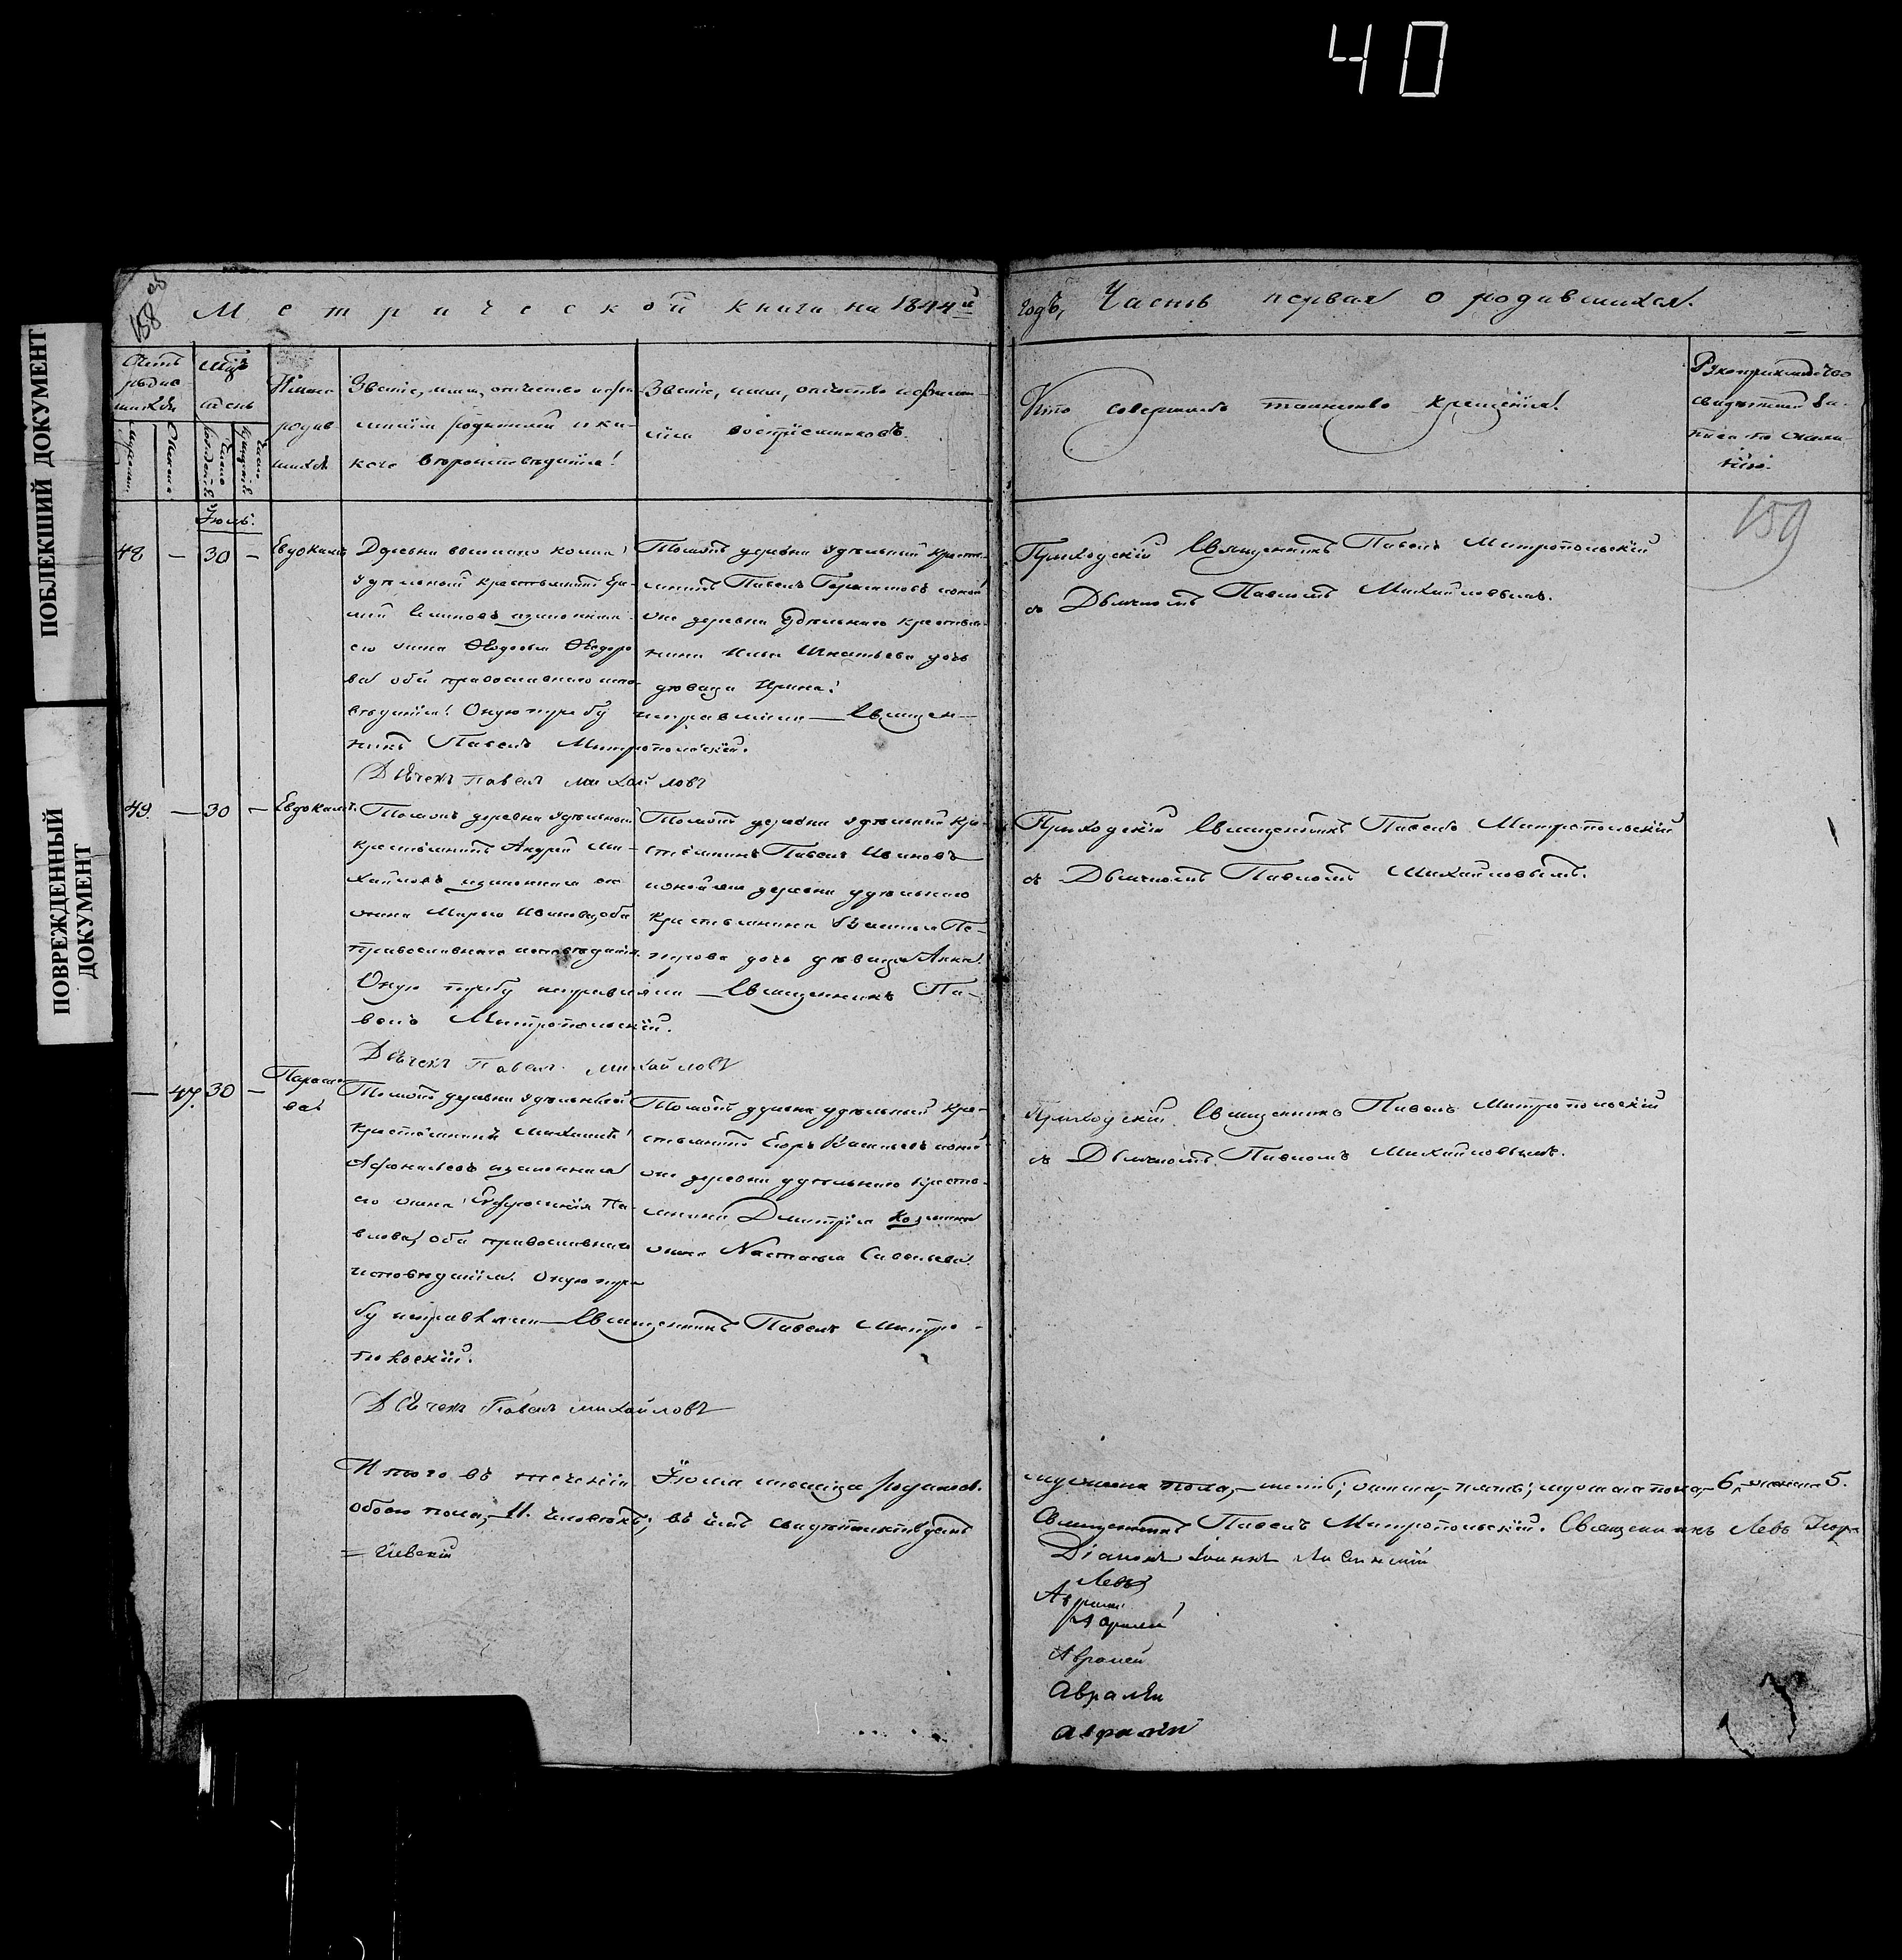 40
ПОБЛЕКШИЙ ДОКУМЕНТ
ПОВРЕЖДЕННЫЙ
ДОКУМЕНТ
158 об
Метрической книги на 1844й
годъ, Часть первая о родившихся.
Мцъ
день
Имена
родив
шихся
Званіе, имя, отчество и фа-
милія родителей и ка-
кого вѣроисповѣданія
Званіе, имя, отчество и фамил-
лія воспріемниковъ.
Кто совершалъ таинство крещенія
Рукоприкладство
свидѣтелей за-
писи по жела-
нію.
159
Іюль.
48 — 30 — Евдокимъ
Деревни
удѣльный крестьянинъ
законная
его жена Ѳедосья Ѳедоро
ва оба православнаго испо-
вѣданія. Оную требу исправляли — Священ-
никъ Павелъ Митропольскій.
Дьячекъ Павелъ Михайловъ
Томожъ деревни удѣльный крестья-
нинъ Павелъ Герасимовъ и оной
же деревни удѣльнаго крестья-
нина Ильи Игнатьева дочь
дѣвица Ирина
Приходскій Священникъ Павелъ Митропольскій
съ Дьячкомъ Павломъ Михайловымъ.
49. — 30 — Евдокимъ
Томожъ деревни удѣльный
крестьянинъ Андрей Ми-
хайловъ и законная его
жена Марья Иванова, оба
православнаго исповѣданія.
Оную требу исправляли — Священникъ Па-
велъ Митропольскій.
Дьячекъ Павелъ Михайловъ
Томожъ деревни удѣльный кре-
стьянинъ Павелъ Ивановъ
и онойже деревни удѣльнаго
крестьянина Василья Пе-
трова дочь дѣвица Анна
Приходскій Священникъ Павелъ Митропольскій
съ Дьячкомъ Павломъ Михайловымъ.
— 47. 30 — Параске
ва
Томожъ деревни удѣльный
крестьянинъ Михаилъ
Афонасьевъ и законная
его жена Евфросинія Па-
влова, оба православнаго
исповѣданія. Оную тре
бу исправляли — Священникъ Павелъ Митро-
польскій.
Дьячекъ Павелъ Михайловъ
Томожъ деревни удѣльный кре-
стьянинъ Егоръ Васильевъ и оной
же деревни удѣльнаго кресть-
янина Дмитрія Козмина
жена Настасья Савельева.
Приходскій Священникъ Павелъ Митропольскій
съ Дьячкомъ Павломъ Михайловымъ.
Итого въ теченіи Іюля мѣсяца родилось
мужеска пола, — шесть; женска, — пять; мужеска пола, — 6, женска 5.
обоего пола, — 11. человѣкъ; въ чемъ свидѣтельствуемъ
Священникъ Павелъ Митропольскій. Священникъ Левъ Геор
= гіевскій
Діаконъ Іоаннъ
Левъ